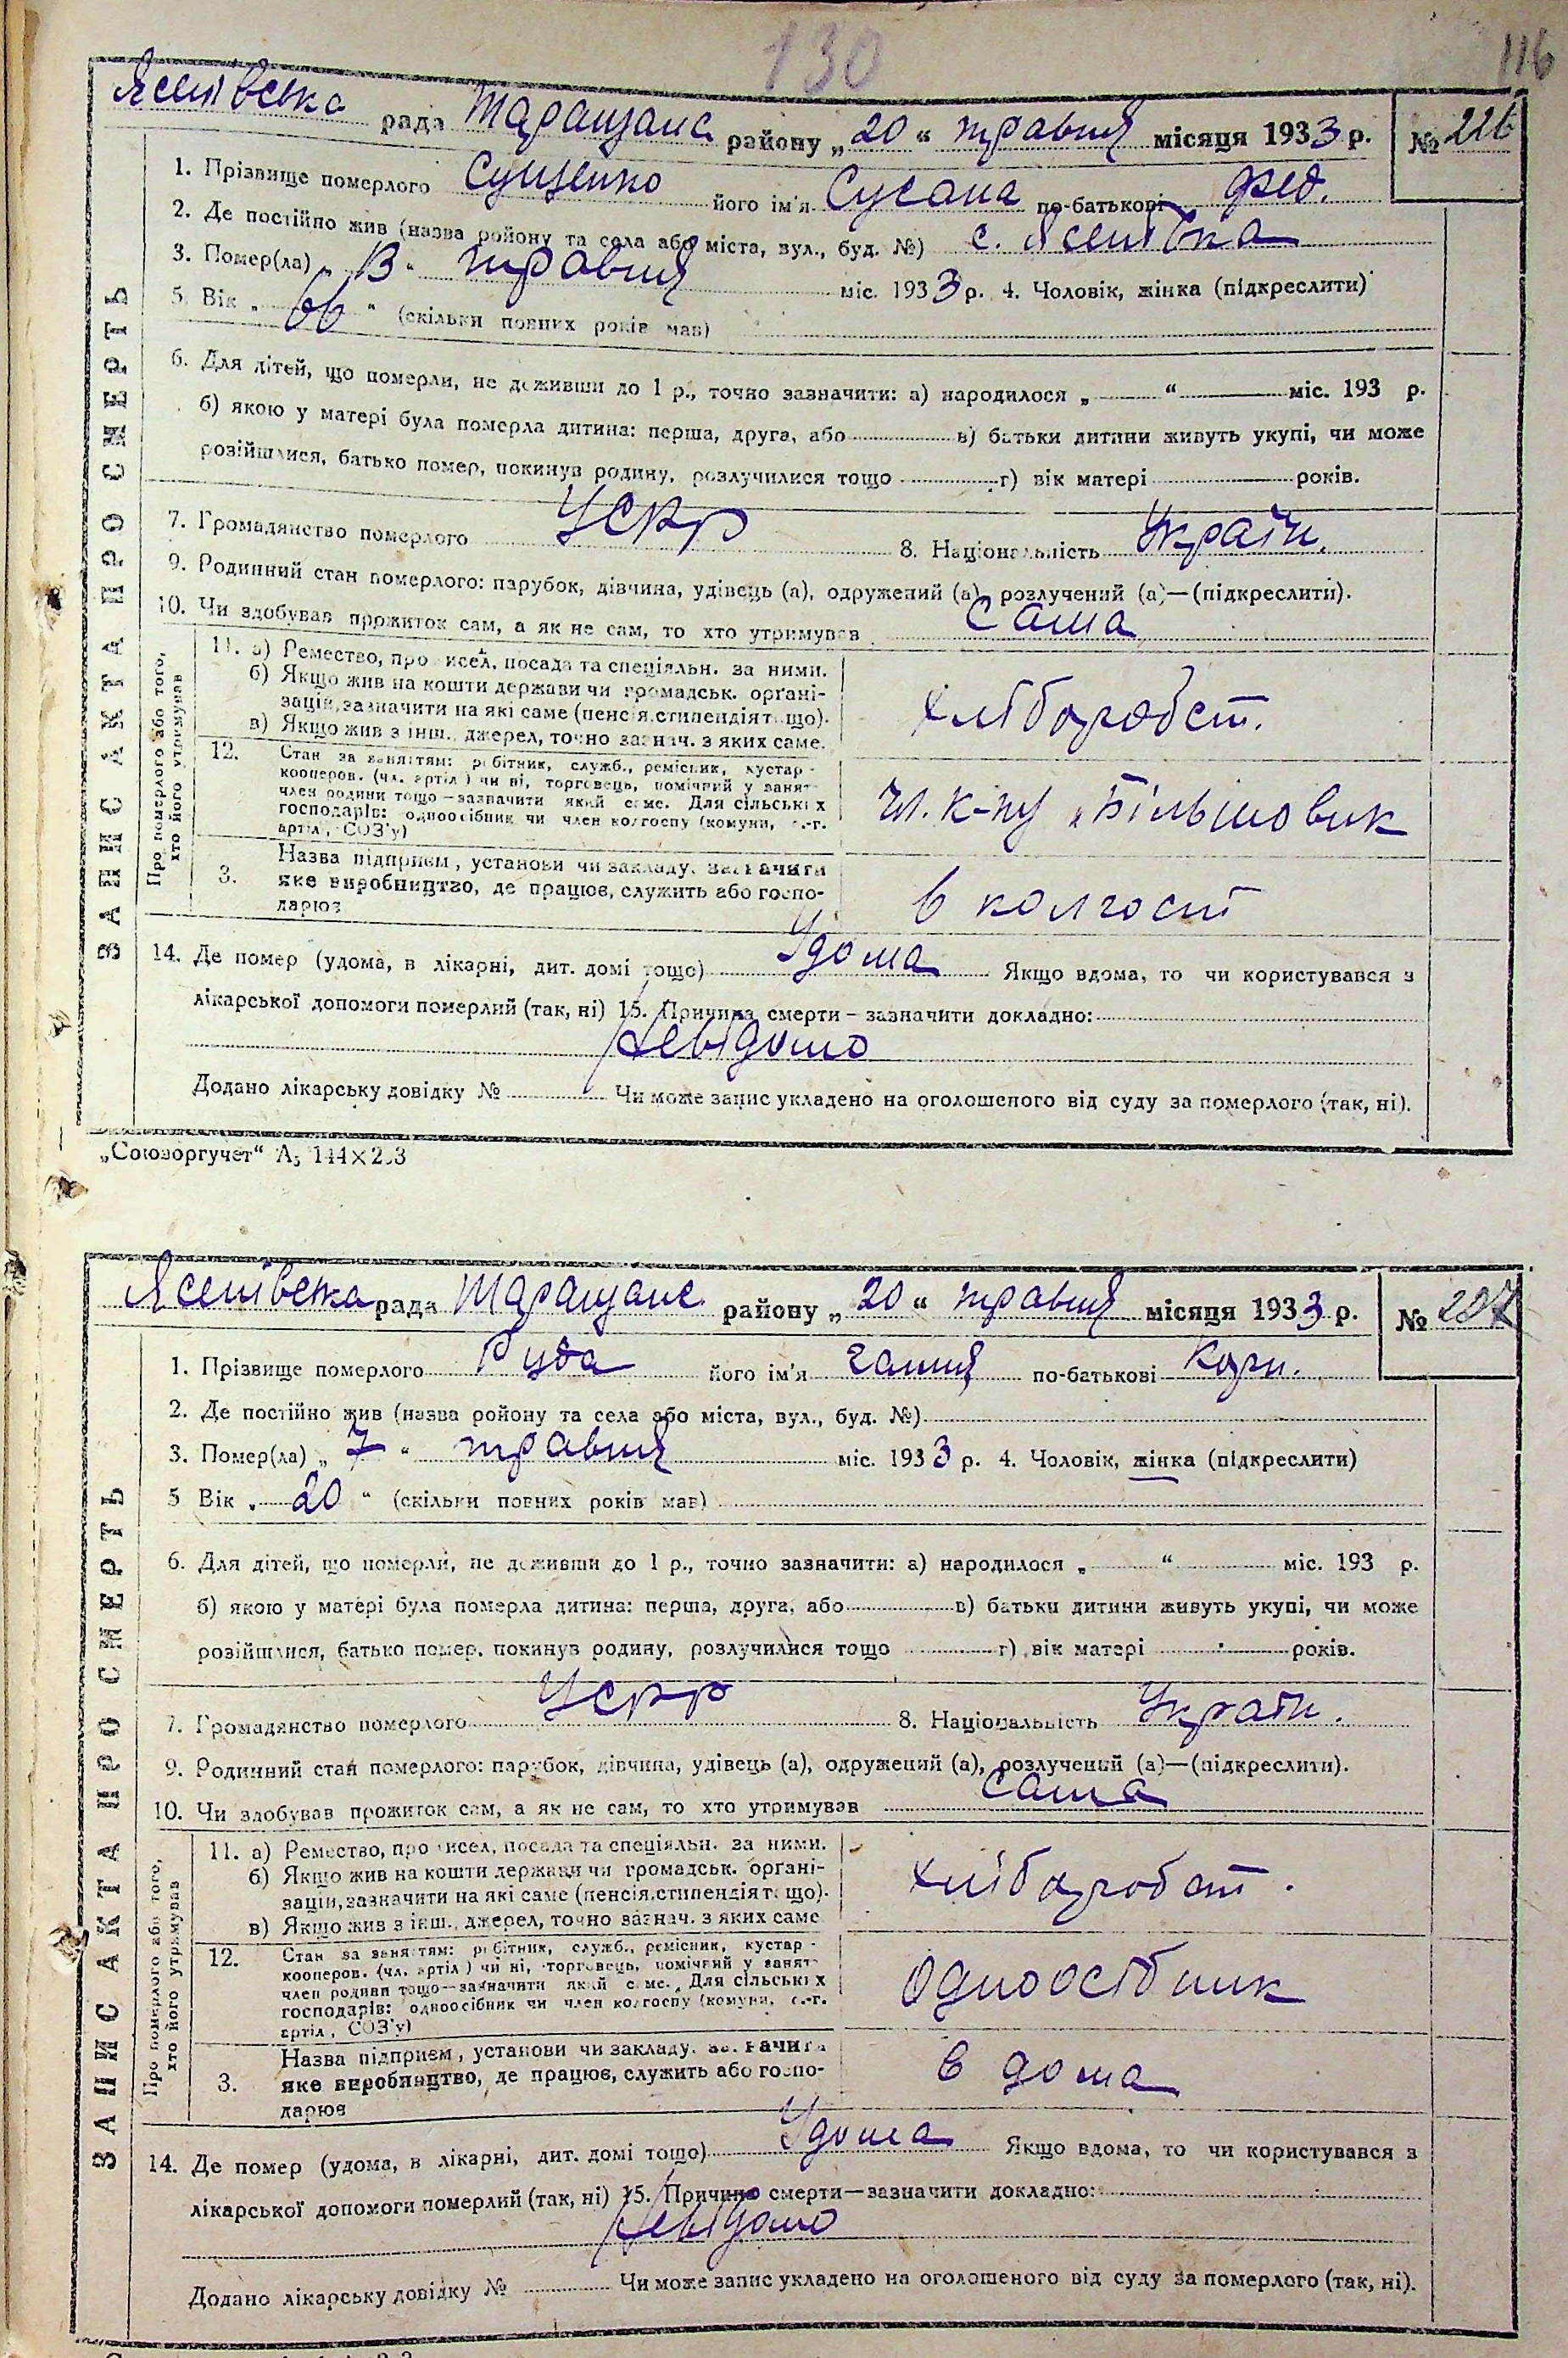 130
116
Ясенівська рада Таращанс. району „20“ травня місяця 1933 р. № 226
ЗАПИС АКТА ПРО СМЕРТЬ
1. Прізвище померлого Сущенко його ім'я Сусана по-батькові Фед.
2. Де постійно жив (назва ройону та села або міста, вул., буд. №) с. Ясенівка
3. Помер(ла) „13“ травня міс. 1933 р. 4. Чоловік, жінка (підкреслити)
5. Вік „66“ (скільки повних років мав)
6. Для дітей, що померли, не доживши до 1 р., точно зазначити: а) народилося „ “ міс. 193 р.
б) якою у матері була померла дитина: перша, друга, або в) батьки дитини живуть укупі, чи може
розійшлися, батько помер, покинув родину, розлучилися тощо г) вік матері років.
7. Громадянство померлого УСРР 8. Національність Україн.
9. Родинний стан померлого: парубок, дівчина, удівець (а), одружений (а), розлучений (а)—(підкреслити).
10. Чи здобував прожиток сам, а як не сам, то хто утримував Сама
Про померлого або того,
хто його утримував
11. а) Ремество, промисел, посада та спеціяльн. за ними.
б) Якщо жив на кошти держави чи громадськ. органі-
зацій, зазначити на які саме (пенсія, стипендія тощо).
в) Якщо жив з інш. джерел, точно зазнач. з яких саме.
хліборобст.
12. Стан за заняттям: робітник, служб., ремісник, кустар -
кооперов. (чл. артіл) чи ні, торговець, помічний у занят-
член родини тощо—зазначити який саме. Для сільських
господарів: одноосібник чи член колгоспу (комуни, с.-г.
артіл, СОЗ'у)
чл. к-пу „Більшовик
3. Назва підприєм, установи чи закладу. зазначити
яке виробництво, де працює, служить або госпо-
дарює
в колгоспі
14. Де помер (удома, в лікарні, дит. домі тощо) Удома Якщо вдома, то чи користувався з
лікарської допомоги померлий (так, ні) 15. Причина смерти—зазначити докладно:
Невідомо
Додано лікарську довідку № Чи може запис укладено на оголошеного від суду за померлого (так, ні).
„Союзоргучет“ А5 144×203
Ясенівська рада Таращанс району „20“ травня місяця 1933 р. № 227
ЗАПИС АКТА ПРО СМЕРТЬ
1. Прізвище померлого Руда його ім'я Гання по-батькові Корн.
2. Де постійно жив (назва ройону та села або міста, вул., буд. №)
3. Помер(ла) „7“ травня міс. 1933 р. 4. Чоловік, жінка (підкреслити)
5 Вік „20“ (скільки повних років мав)
6. Для дітей, що померли, не доживши до 1 р., точно зазначити: а) народилося „ “ міс. 193 р.
б) якою у матері була померла дитина: перша, друга, або в) батьки дитини живуть укупі, чи може
розійшлися, батько помер, покинув родину, розлучилися тощо г) вік матері років.
7. Громадянство померлого УСРР 8. Національність Україн.
9. Родинний стан померлого: парубок, дівчина, удівець (а), одружений (а), розлучений (а)—(підкреслити).
10. Чи здобував прожиток сам, а як не сам, то хто утримував сама
Про померлого або того,
хто його утримував
11. а) Ремество, промисел, посада та спеціяльн. за ними.
б) Якщо жив на кошти держави чи громадськ. органі-
зацій, зазначити на які саме (пенсія, стипендія тощо).
в) Якщо жив з інш. джерел, точно зазнач. з яких саме
хліборобст.
12. Стан за заняттям: робітник, служб., ремісник, кустар -
кооперов. (чл. артіл) чи ні, торговець, помічний у занят-
член родини тощо—зазначити який саме. Для сільських
господарів: одноосібник чи член колгоспу (комуни, с.-г.
артіл, СОЗ'у)
Одноосібник
3. Назва підприєм, установи чи закладу. зазначити
яке виробництво, де працює, служить або госпо-
дарює
в дома
14. Де помер (удома, в лікарні, дит. домі тощо) Удома Якщо вдома, то чи користувався з
лікарської допомоги померлий (так, ні) 15. Причина смерти—зазначити докладно:
Невідомо
Додано лікарську довідку № Чи може запис укладено на оголошеного від суду за померлого (так, ні).